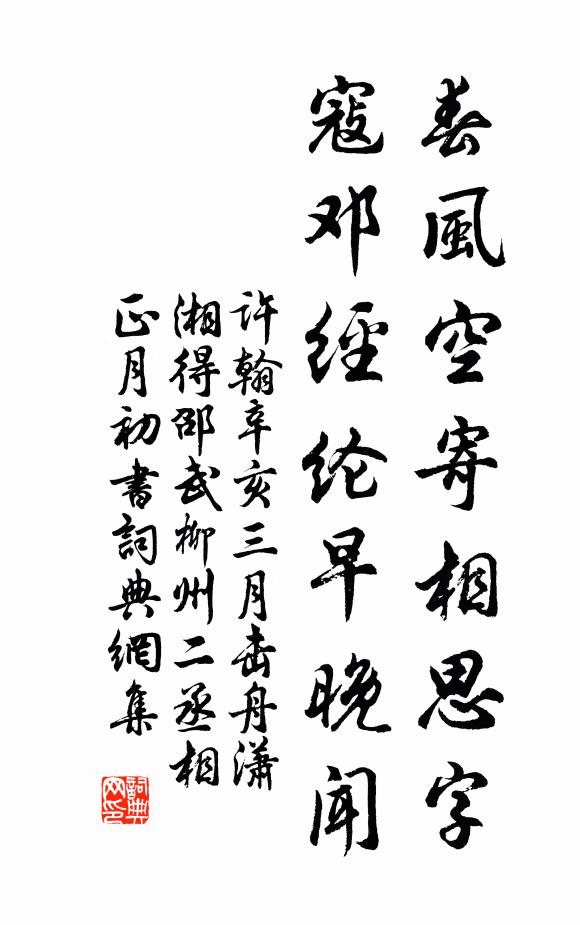 春風空寄相思字
寇邓經纶早晚闻
許翰辛亥三月击舟瀟
湘得邵武柳州二丞相
正月初書詞典網集
詞典
网印